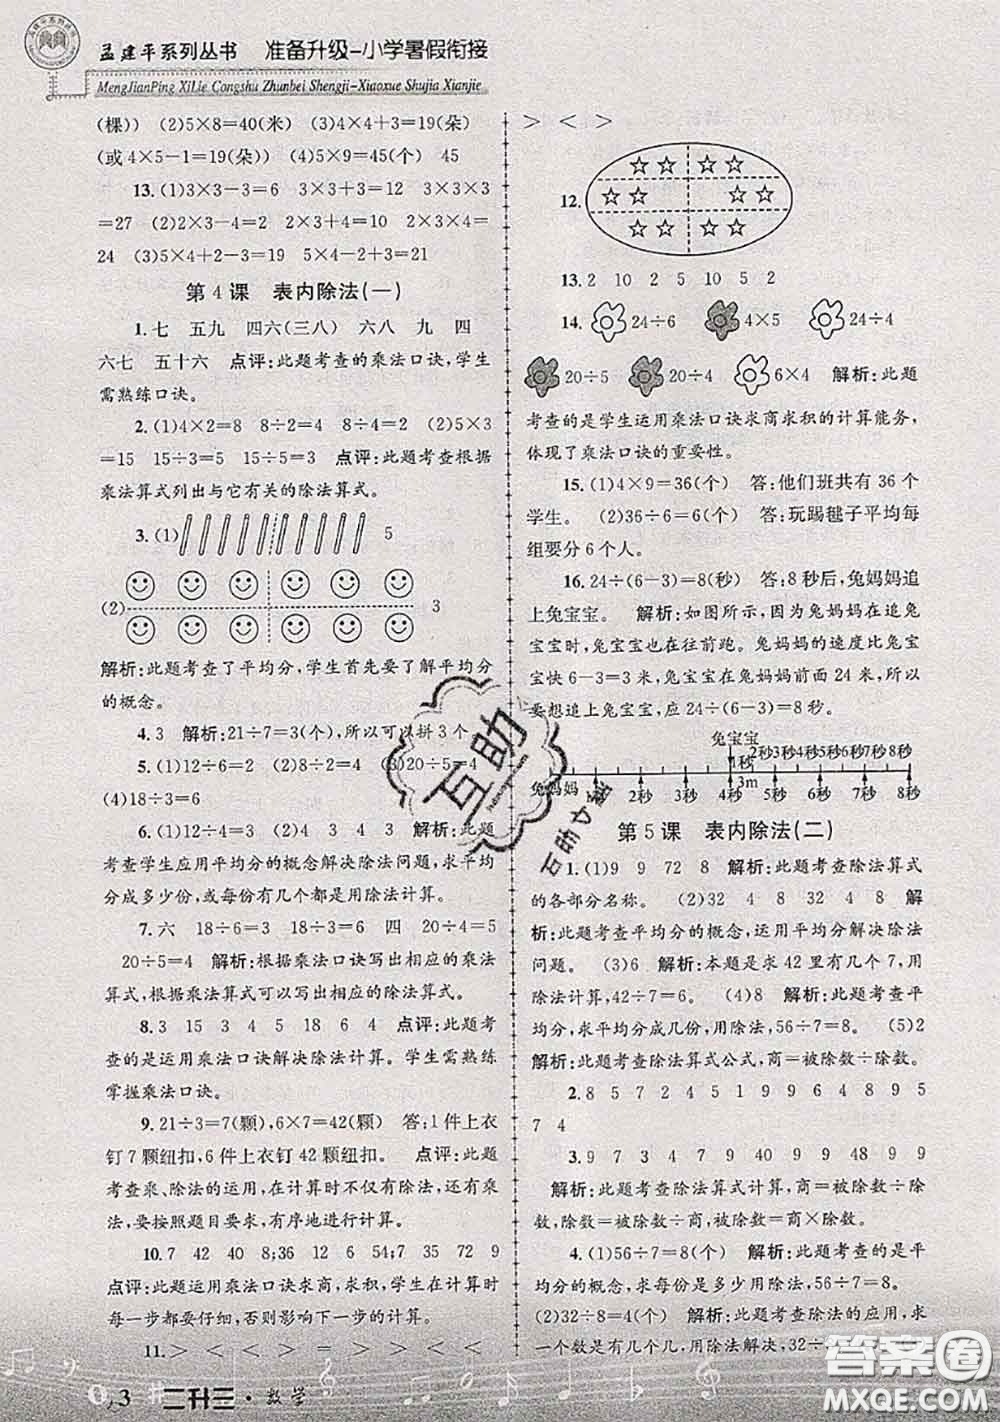 孟建平系列丛书 准备升级-小学暑假衔接
MengJianPing XiLie Congshu Zhunbei Shengji-Xiaoxue Shujia Xianjie
(棵)) (2)5×8=40(米) (3)4×4+3=19(朵)
(或4×5-1=19(朵)) (4)5×9=45(个) 45
13.(1)3×3-3=6 3×3+3=12 3×3×3
=27 (2)2×3-4=2 2×3+4=10 2×3×4=
24 (3)5×4+2-3=19 5×4-2+3=21
第4课 表内除法(一)
1.七 五九 四六(三八) 六八 九 四
六七 五十六 点评:此题考查的乘法口诀,学生
需熟练口诀。
2.(1)4×2=8 8÷2=4 8÷4=2 (2)5×3
=15 15÷3=5 15÷5=3 点评:此题考查根据
乘法算式列出与它有关的除法算式。
3.(1) 5
(2) 3
解析:此题考查了平均分,学生首先要了解平均分
的概念。
4.3 解析:21÷7=3(个),所以可以拼3个。
5.(1)12÷6=2 (2)8÷2=4 (3)20÷5=4
(4)18÷9=2
6.(1)12÷4=3 (2)8÷4=2 解析:此题
考查学生应用平均分的概念解决除法问题,求平均
分成几份,或每份有几个都是用除法计算。
7.六 18÷6=3 18÷3=6 四 20÷4=5
20÷5=4 解析:根据乘法口诀写出相应的乘法
算式,根据乘法算式可以写出相应的除法算式。
8.3 4 3 5 4 15 18 6 4 点评:此题考
查的是运用乘法口诀解决除法计算。学生需熟练
掌握乘法口诀。
9.21÷3=7(颗),6×7=42(颗) 答:1件上衣
钉7颗纽扣,6件上衣钉42颗纽扣。 点评:此题
考查乘、除法的运用,在计算时不仅有除法,还有乘
法,要按照题目要求,有序地进行计算。
10.7 42 40 8 6 36 7 35 72 9
点评:此题运用乘法口诀求商,求积,学生在计算时
每一步都要仔细,否则影响下一步的计算。
11.> > > < > < > < <
> < >
12.
13.2 10 2 5 10 5 2
14. 24÷6 4×5 24÷4
20÷5 20÷4 6×4 解析:此题
考查的是学生运用乘法口诀求商求积的计算能务,
体现了乘法口诀的重要性。
15.(1)4×9=36(个) 答:他们班共有36个
学生。 (2)36÷6=6(个) 答:玩踢毽子平均每
组要分6个人。
16.24÷(6-3)=8(秒) 答:8秒后,兔妈妈追
上兔宝宝。 解析:如图所示,因为兔妈妈在追兔
宝宝时,兔宝宝也在往前跑。兔妈妈的速度比兔宝
宝快6-3=3米,兔宝宝在兔妈妈前面24米,所以
要想追上兔宝宝,应24÷(6-3)=8(秒)。
兔宝宝
1秒 2秒 3秒 4秒 5秒 6秒 7秒 8秒
3m
兔妈妈 1秒 2秒 3秒 4秒 5秒 6秒 7秒 8秒
第5课 表内除法(二)
1.(1)9 9 72 8 解析:此题考查除法算式
的各部分名称。 (2)32 4 8 32 4 8 解
析:此题考查平均分的概念,运用平均分解决除法
问题。 (3)6 解析:本题是求42里有几个7,用
除法计算,42÷7=6。 (4)8 解析:此题考查平
均分,求平均分成几份,用除法,56÷7=8。 (5)2
解析:此题考查除法算式公式,商=被除数÷除数。
2.8 5 7 2 4 5 1 9 9 6 4 8 9 5
7 4
3.9 7 3 4 7 9 40 9 9 48 99 9
解析:此题考查除法算式计算,商=被除数÷除
数,除数=被除数÷商,被除数=商×除数。
4.(1)56÷7=8(个) 解析:此题考查平均
分的概念,求每份是多少用除法,56÷7=8。
(2)32÷8=4(个) 解析:此题考查除法的应用,求
一个数里有几个几,用除法解决,32÷
3 二升三·数学
互助
答案圈